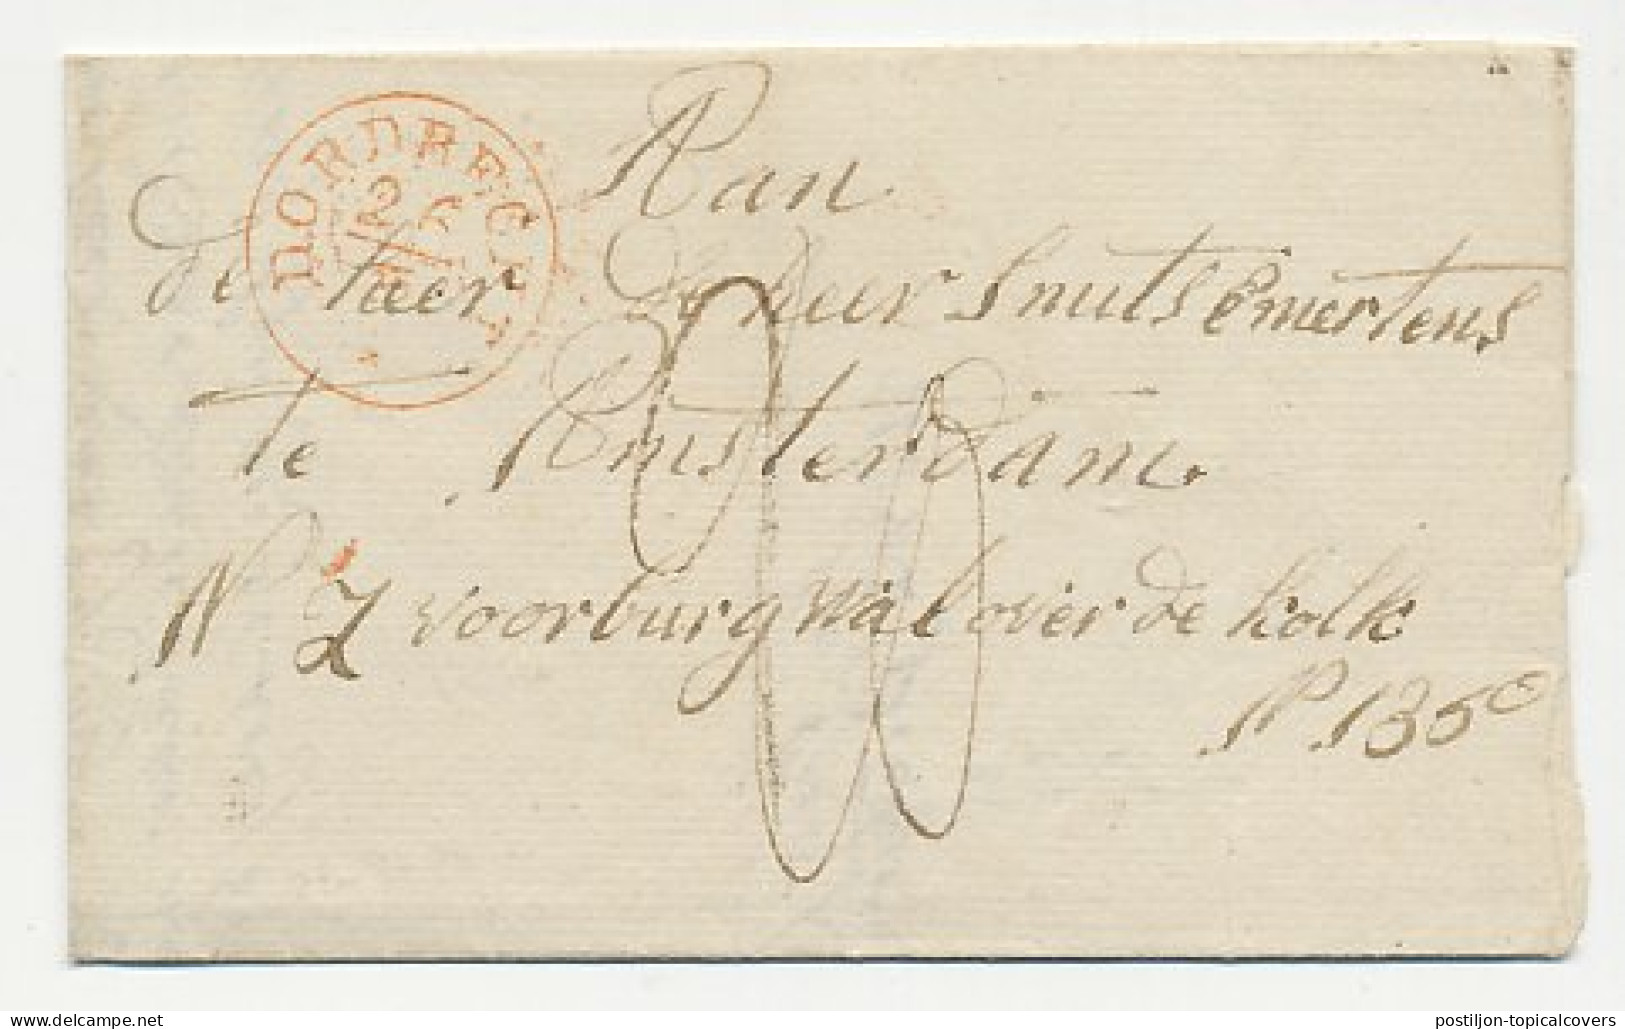 DORDRECHT
26
Aan
de heer de heer Smuts & mertens
te Amsterdam
N Z voorburgwal over de kolk
N 135
delcampe.net
postiljon-topicalcovers